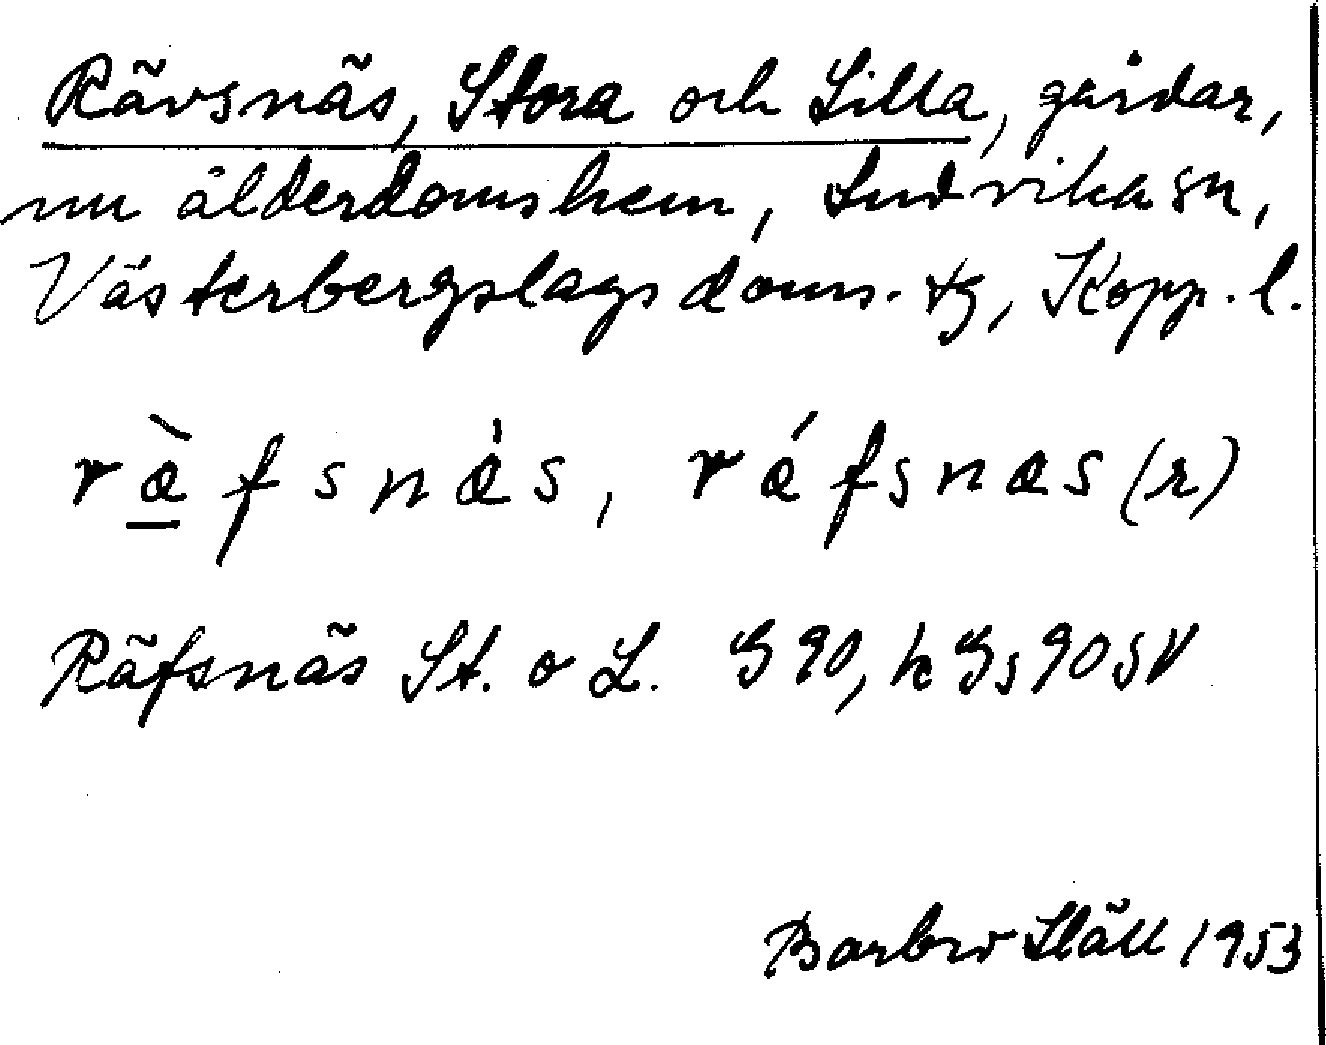 Rävsnäs, Stora och Lilla, gårdar,
nu ålderdomshem, Ludvika sn,
Västerbergslags doms. tg, Kopp. l.
ræ̀fsnæ̍s, rǽfsnæs (r)
Räfsnäs St. o L. G 90, h Gs 90 SV
Barbro Släll 1953